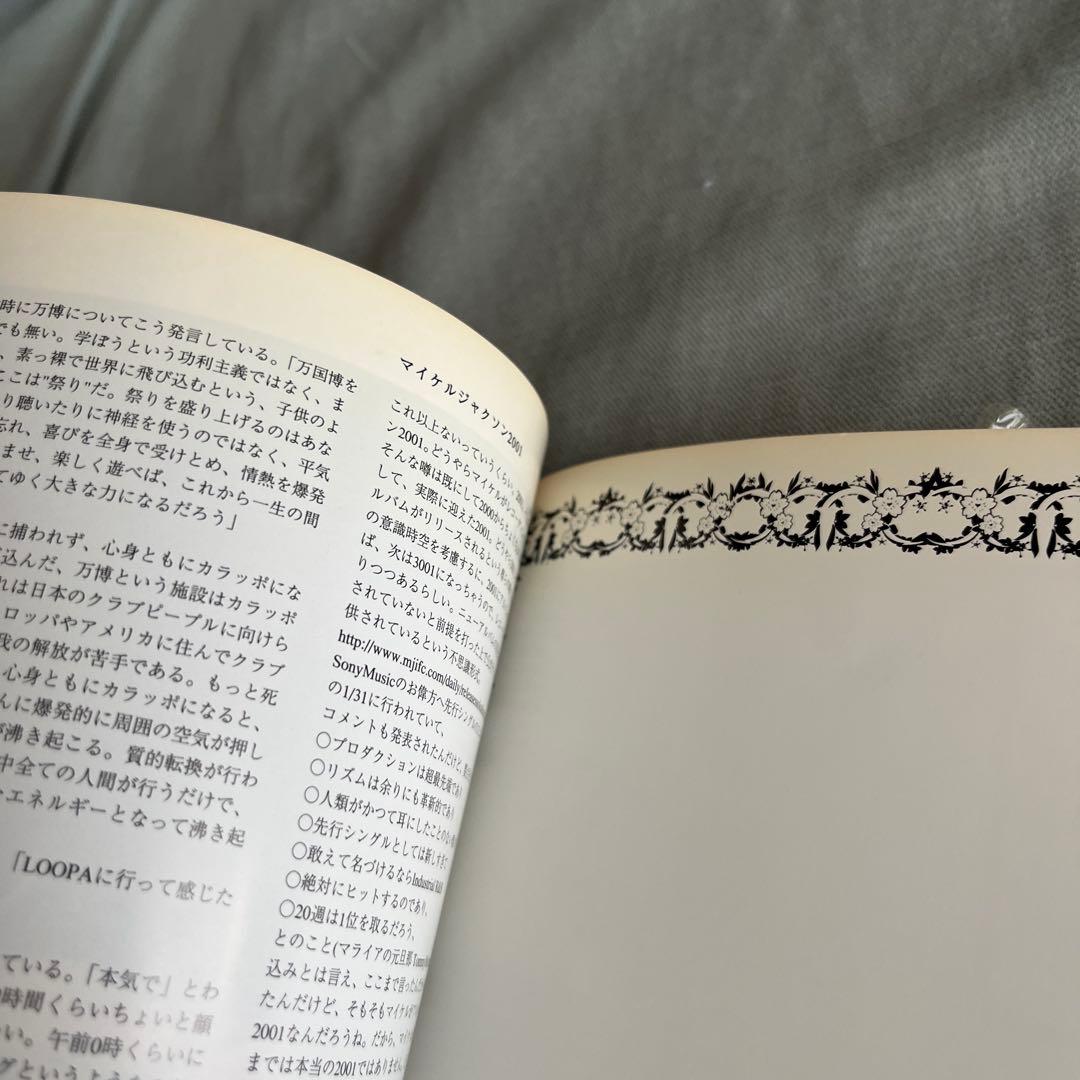 時に万博についてこう発言している。「万国博を
でも無い。学ぼうという功利主義ではなく、ま
、素っ裸で世界に飛び込むという、子供のよ
ここは"祭り"だ。祭りを盛り上げるのはあな
り聴いたりに神経を使うのではなく、平気
忘れ、喜びを全身で受けとめ、情熱を爆発
ませ、楽しく遊べば、これから一生の間
てゆく大きな力になるだろう」
に捕われず、心身ともにカラッポにな
込んだ、万博という施設はカラッポ
れは日本のクラブピープルに向けら
ロッパやアメリカに住んでクラブ
我の解放が苦手である。もっと死
心身ともにカラッポになると、
んに爆発的に周囲の空気が押し
が沸き起こる。質的転換が行わ
中全ての人間が行うだけで、
エネルギーとなって沸き起
「LOOPAに行って感じた
ている。「本気で」とわ
時間くらいちょいと顔
い。午前0時くらいに
マイケルジャクソン2001
これ以上ないっていうくらい
ン2001。どうやらマイケルが
そんな噂は既にして2000から
して、実際に迎えた2001。
ルバムがリリースされるという
の意識時空を考慮するに、2001に
ば、次は3001になっちゃうので、
りつつあるらしい。ニューアルバムの
されていないと前提を打った上で
供されているという不思議形式。
http://www.mjifc.com/daily/
SonyMusicのお偉方へ先行シングルの
の1/31に行われていて、
コメントも発表されたんだけど、
○プロダクションは超最先端であり
○リズムは余りにも革新的であり
○人類がかつて耳にしたことのない
○先行シングルとしては新しすぎて、
○敢えて名づけるならIndustrial R&B
○絶対にヒットするのであり、
○20週は1位を取るだろう、
とのこと(マライアの元旦那
込みとは言え、ここまで言ったんだ
たんだけど、そもそもマイケルが
2001なんだろうね。だから、マイ
までは本当の2001ではありません。